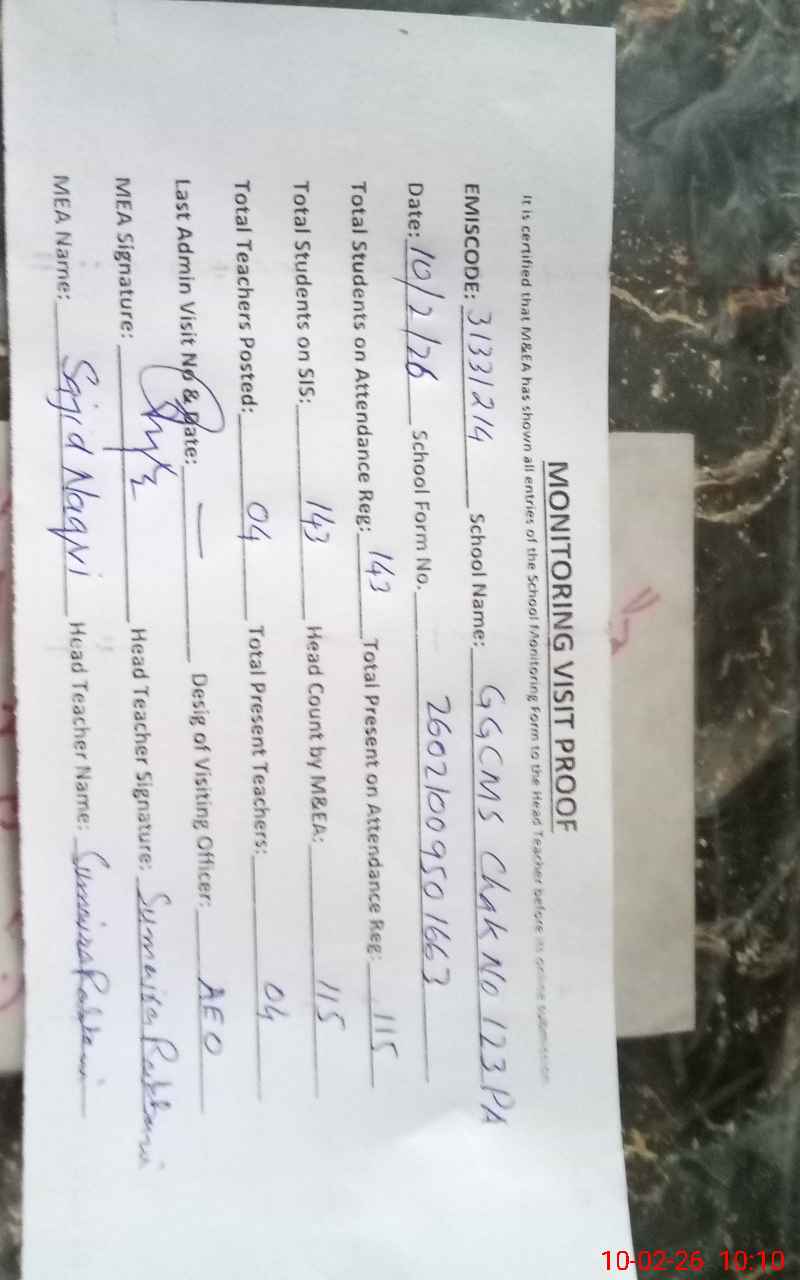 MONITORING VISIT PROOF
It is certified that M&EA has shown all entries of the School Monitoring Form to the Head Teacher before its online submission
EMISCODE: 31331214 School Name: GGCMS Chak No 123 PA
Date: 10/2/26 School Form No. 2602100950 1663
Total Students on Attendance Reg: 143 Total Present on Attendance Reg: 115
Total Students on SIS: 143 Head Count by M&EA: 115
Total Teachers Posted: 04 Total Present Teachers: 04
Last Admin Visit No & Date: — Desig of Visiting Officer: AEO
MEA Signature: Head Teacher Signature: Sumaira
MEA Name: Sajid Naqvi Head Teacher Name: Sumaira
10-02-26 10:10